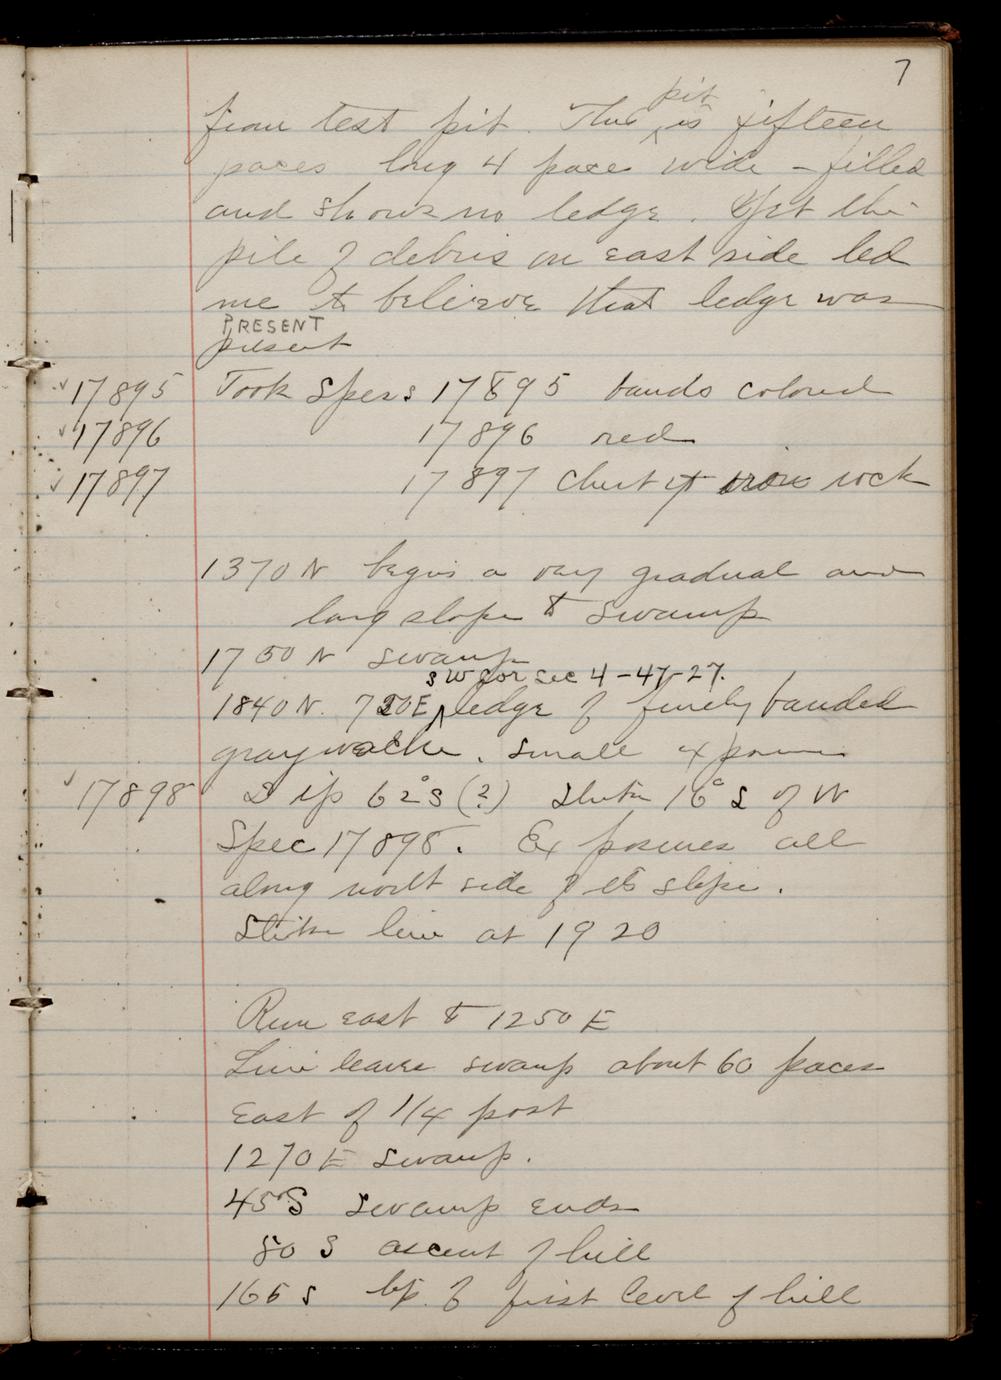 7
pit
from test pit. This ^ is fifteen
paces long 4 paces wide – filled
and shows no ledge. Yet the
pile of debris on east side led
me to believe that ledge was
PRESENT
present
17895 Took Specs 17895 bands colored
17896 17896 red
17897 17897 chert & iron rock
1370 N begins a very gradual and
long slope to swamp
1750 N swamp
SW cor sec 4-47-27.
1840 N. 750 E ^ ledge of finely banded
graywacke. Small exposure
17898 Dip 62° S (?) Strike 16° S of W
Spec 17898. Exposures all
along north side of the slope.
Strike line at 1920
Run east to 1250 E
Line leaves swamp about 60 paces
East of 1/4 post
1270 E swamp.
450 S swamp ends
50 S ascent of hill
165 S top of first level of hill